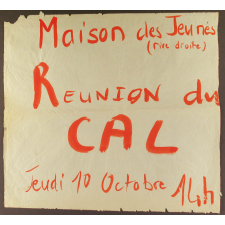 Maison des Jeunes
(rive droite)
REUNION du
CAL
jeudi 10 Octobre 14h